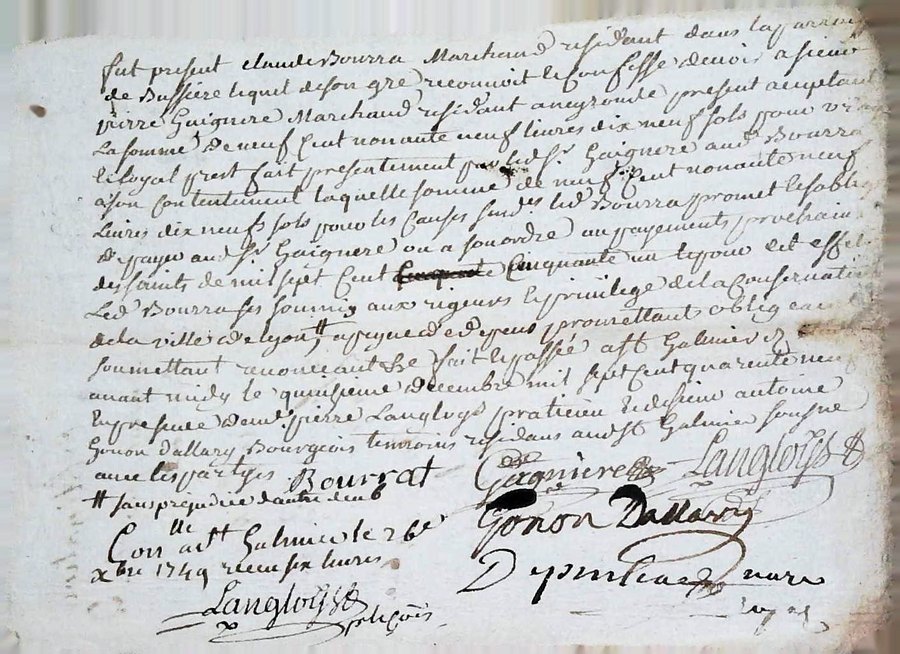 fut present claude Bourra Marchand residant dans la parroisse
de Bussiere lequel de son gre reconnoit et confesse devoir a sieur
pierre Gaignere Marchand residant a neyronde present acceptant
La somme de neuf Cent nonante neuf livres dix neuf sols pour vray
et loyal prest fait presentement par led. Sr. Gaignere aud. Bourra
a son contentement laquelle somme de neuf Cent nonante neuf
livres dix neufs sols pour les causes susd.es led. Bourra promet et s'oblige
de payer aud. Sr. Gaignere ou a son ordre au payements prochain
des saints de mil sept Cent Cinquante un et pour cet effet
Led. Bourra ses soumis aux rigeurs et privilege de la Conservation
de la ville de Lyon a peyne de depens promettants obligeant
soumettant renonceant &c fait et passée a St. Galmier
avant midy le quinsieme decembre mil sept Cent quarente neuf
en presence de me. pierre Langloys praticien et de sieur antoine
Gonon dallary Bourgeois temoins residans aud. St. Galmier soussigne
avec les partyes Bourrat
Gagniere Langloys
# sans prejudice d'autre deub
Gonon Dallary
Con.lle a St. Galmier le 26e
xbre 1749 receu six livres
Langloys